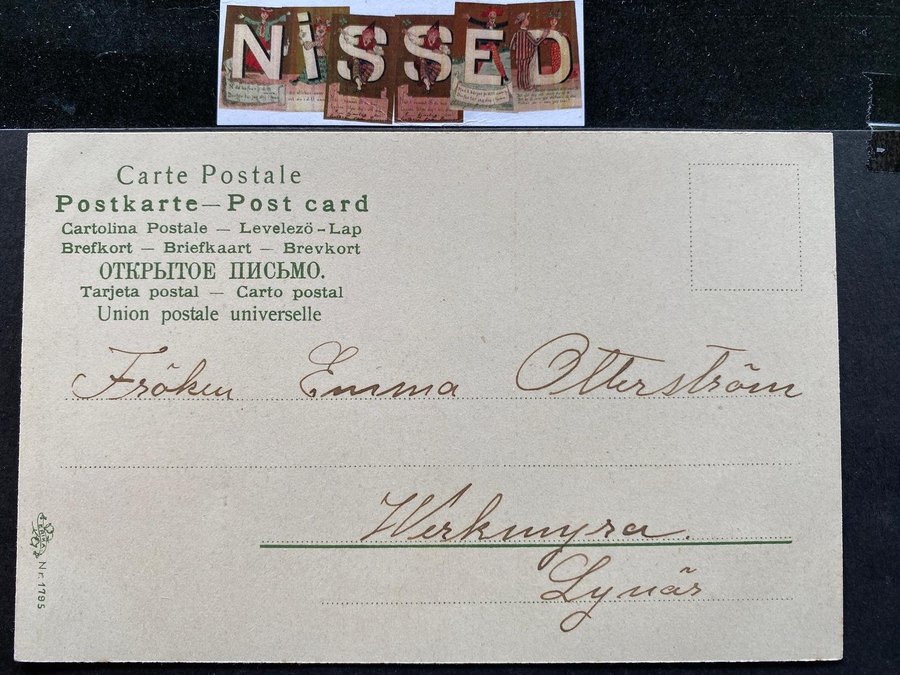 NiSSED
Carte Postale
Postkarte — Post card
Cartolina Postale — Levelezö-Lap
Brefkort — Briefkaart — Brevkort
ОТКРЫТОЕ ПИСЬМО.
Tarjeta postal — Carto postal
Union postale universelle
Fröken Emma Otterström
Werkmyra.
Lynäs
Nr. 1795